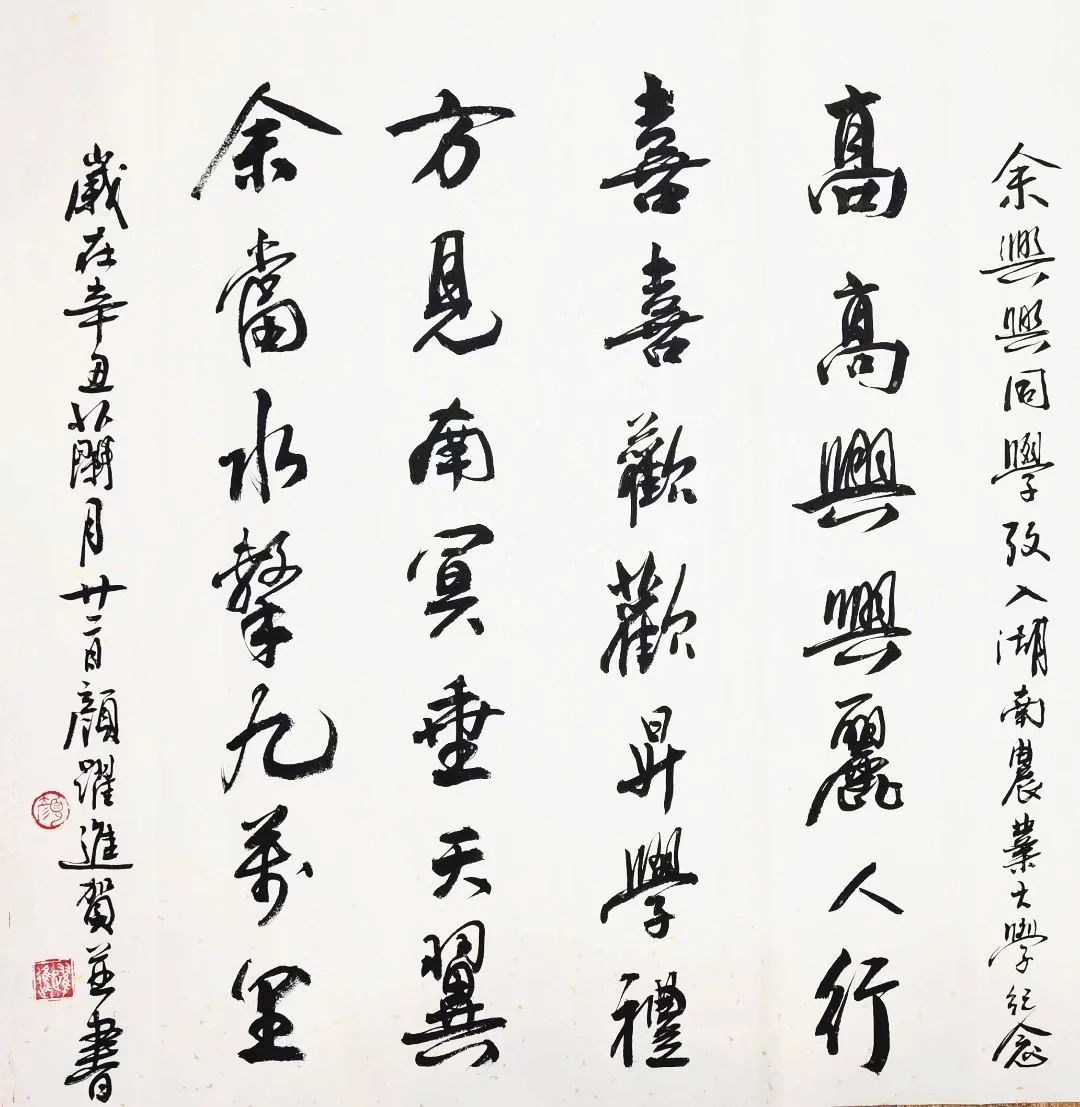 余興興同學攷入湖南農業大學紀念
高高興興麗人行
喜喜歡歡昇學禮
方見南冥垂天翼
余當水擊九萬里
歲在辛丑蘭月廿二日顏躍進賀並書
顏